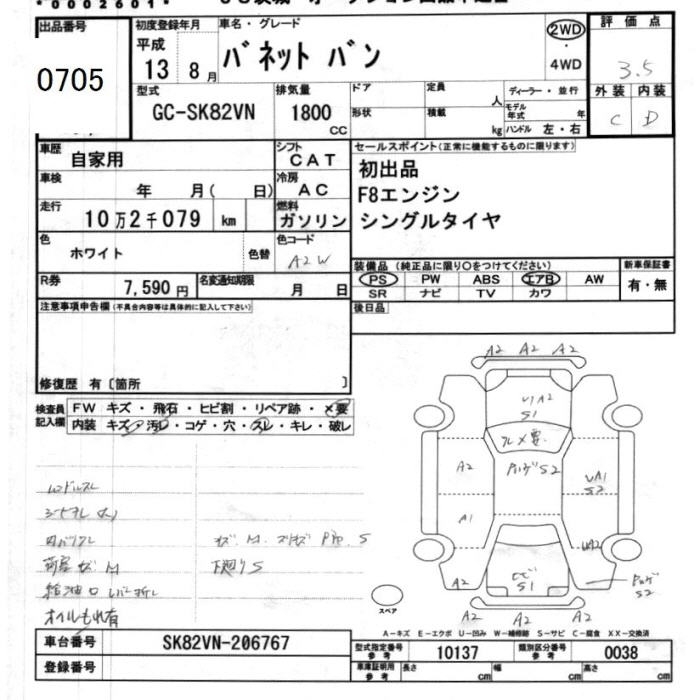 *0002601*
出品番号
0705
初度登録年月
平成
13 8月
車名・グレード
バネット バン
2WD
・
4WD
評価点
3.5
外装 内装
C D
型式
GC-SK82VN
排気量
1800
CC
ドア
形状
定員
人
積載
kg
ディーラー・並行
モデル年式 年
ハンドル 左・右
車歴
自家用
シフト
CAT
車検
年 月( 日)
冷房
AC
走行
10万2千079 km
燃料
ガソリン
色
ホワイト
色替
色コード
A2W
R券
7,590円
名変通知期限
月 日
セールスポイント(正常に機能するものに限ります)
初出品
F8エンジン
シングルタイヤ
装備品(純正品に限り○をつけてください)
PS PW ABS エアB AW
SR ナビ TV カワ
新車保証書
有・無
後日品
注意事項申告欄(不具合内容等は具体的に記入して下さい)
修復歴 有〔箇所 〕
検査員
記入欄
FW キズ・飛石・ヒビ割・リペア跡・×要
内装 キズ・汚レ・コゲ・穴・スレ・キレ・破レ
シートスレ 大
内バリスレ
荷室キズ M
給油口レバー折レ
オイルもれ有
キズ M
下廻りS
A2 A2 A2
U1 A2
S1
フレ×要
A2
A1
S2
UA1
S2
UA2
A2
サビ
S1
S2
A2 A2 A2
スペア
A-キズ E-エクボ U-凹み W-補修跡 S-サビ C-腐食 XX-交換済
車台番号
SK82VN-206767
登録番号
型式指定番号
参考
10137
類別区分番号
参考
0038
車庫証明用
参考
長さ cm
幅 cm
高さ cm